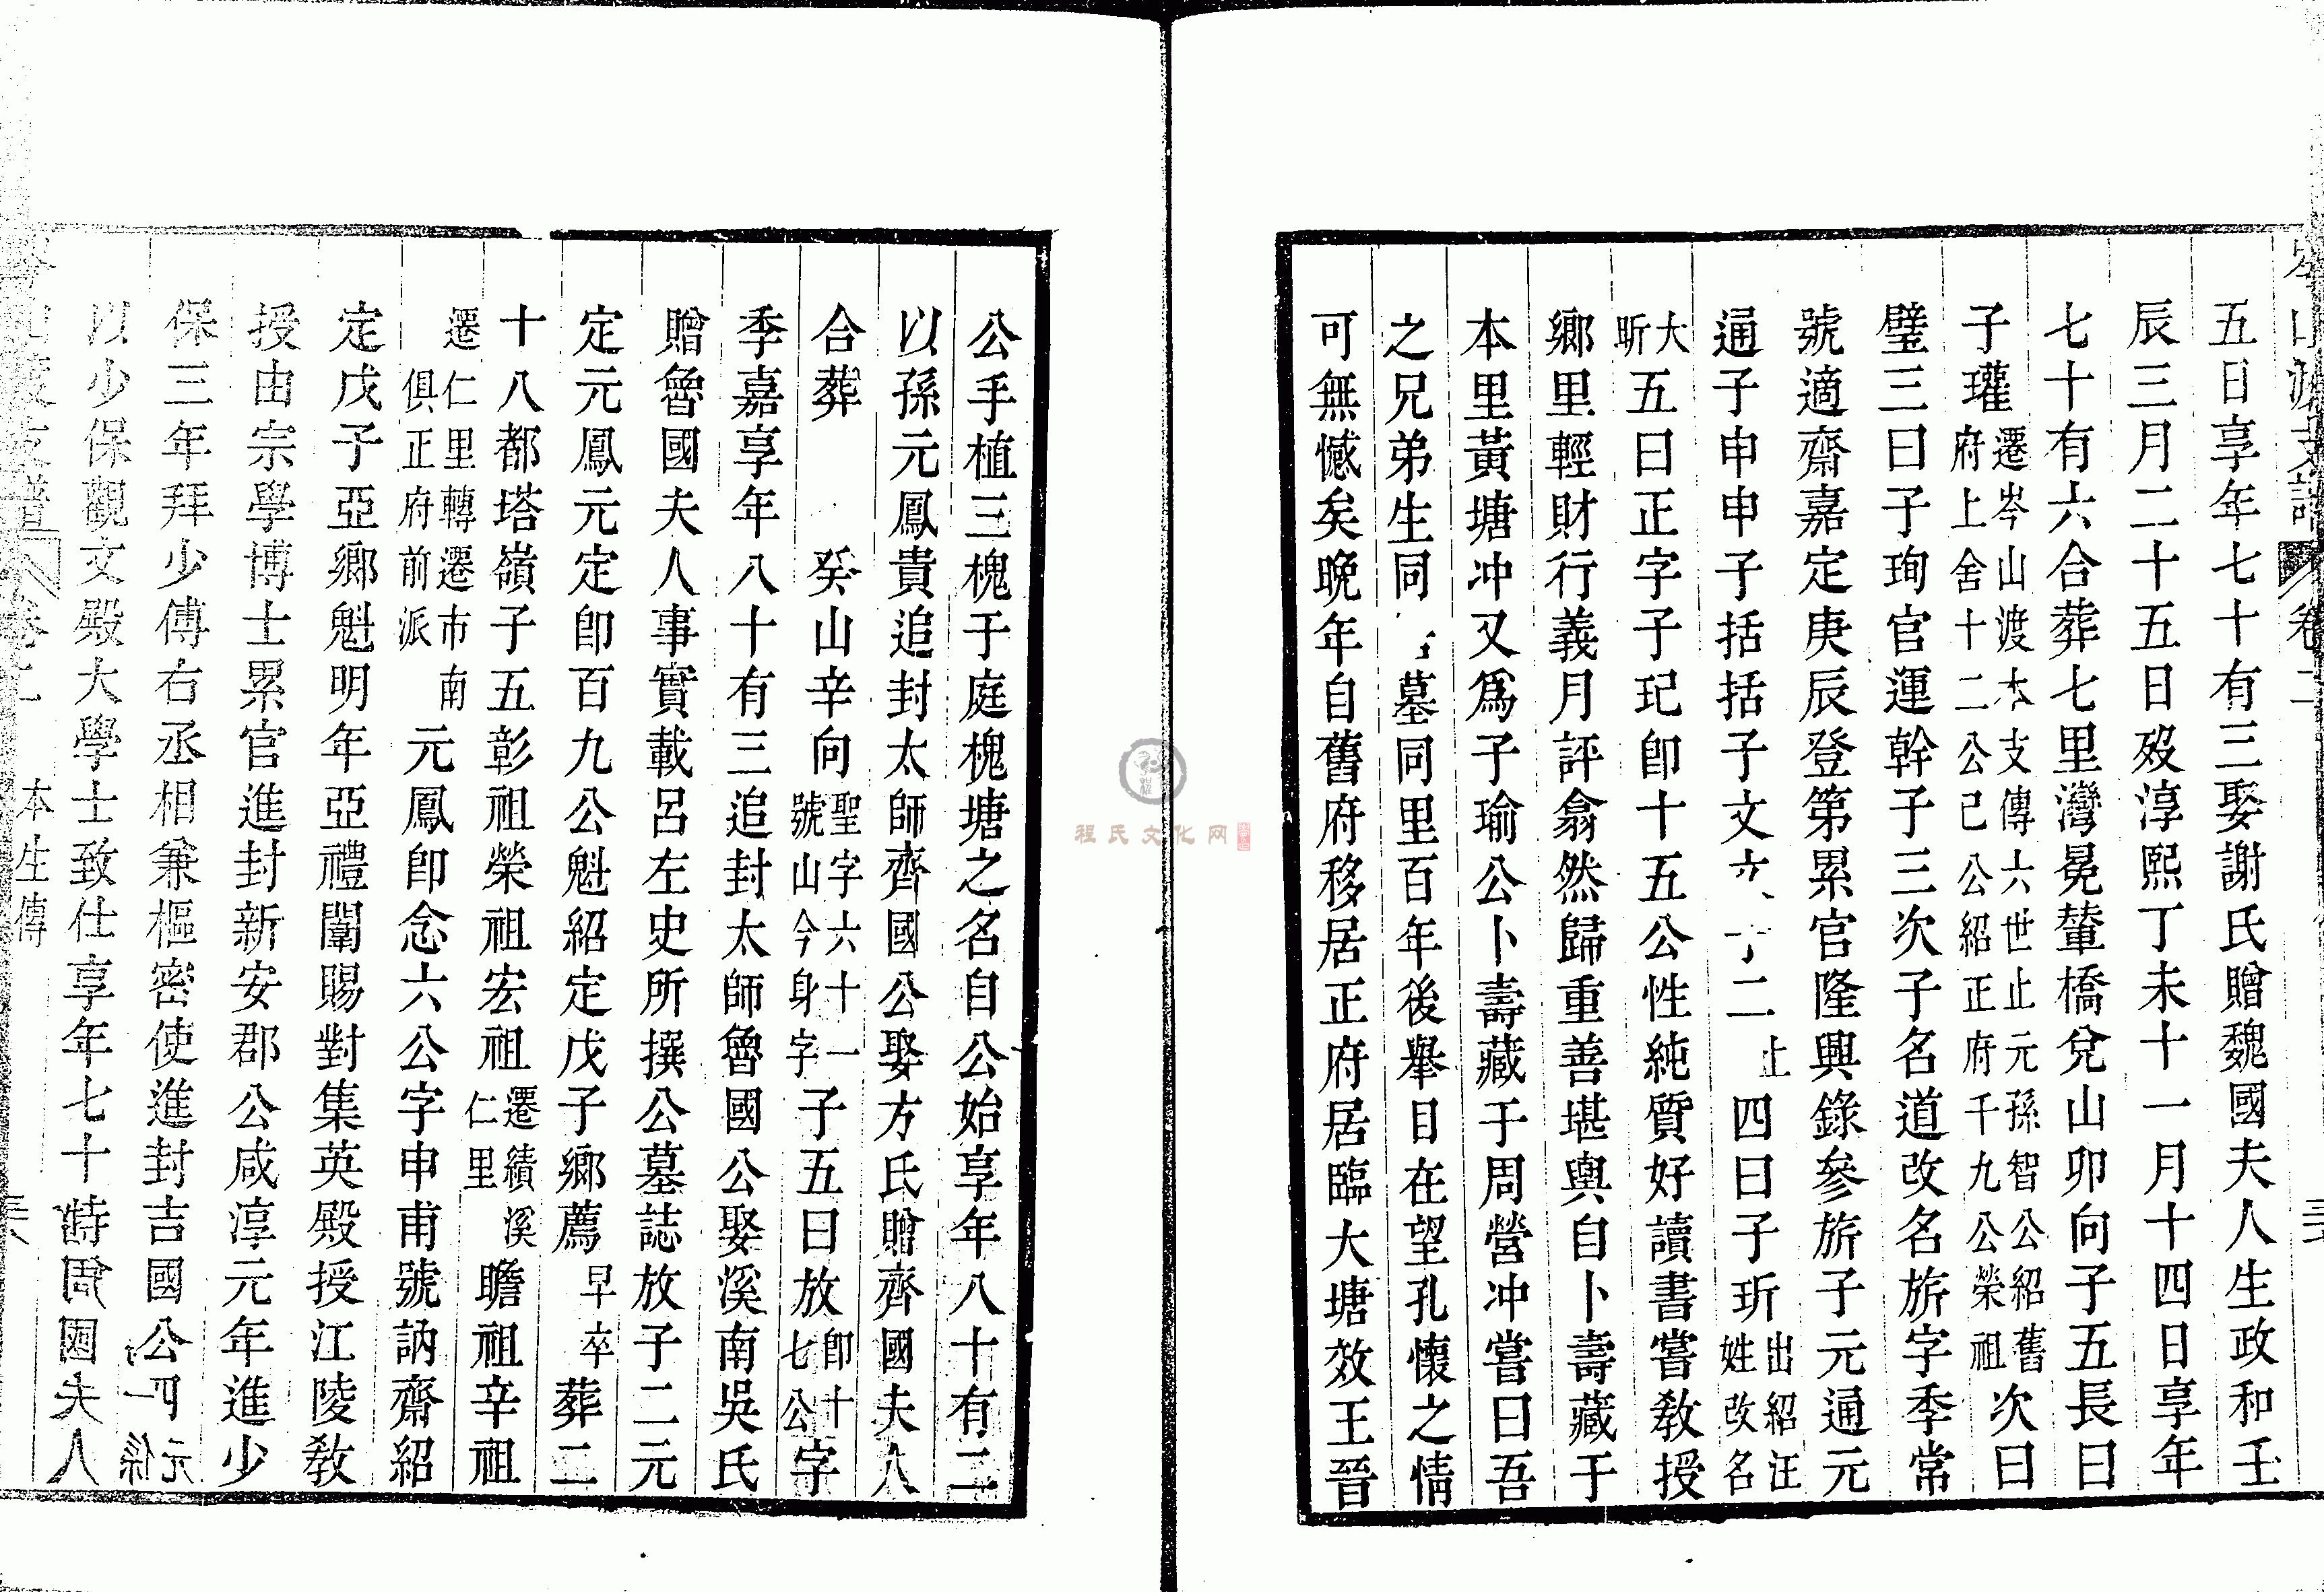 五日享年七十有三娶謝氏贈魏國夫人生政和壬
辰三月二十五日歿淳熙丁未十一月十四日享年
七十有六合葬七里灣冕輦橋兌山卯向子五長曰
子瓘遷岑山渡本支傳六世止元孫智公紹舊府上舍十二公己公紹正府千九公榮祖次曰
璧三曰子珣官運幹子三次子名道改名旂字季常
號適齋嘉定庚辰登第累官隆興錄參旂子元通元
通子申申子括括子文二止四曰子玬出紹汪姓改名
大昕五曰正字子玘卽十五公性純質好讀書嘗敎授
鄉里輕財行義月評翕然歸重善堪輿自卜壽藏于
本里黃塘冲又爲子瑜公卜壽藏于周營冲嘗曰吾
之兄弟生同墓同里百年後舉目在望孔懷之情
可無憾矣晚年自舊府移居正府居臨大塘效王晉
公手植三槐于庭槐塘之名自公始享年八十有二
以孫元鳳貴追封太師齊國公娶方氏贈齊國夫人
合葬癸山辛向聖字六十一號山今身字子五曰放卽十七公字
季嘉享年八十有三追封太師魯國公娶溪南吳氏
贈魯國夫人事實載呂左史所撰公墓誌放子二元
定元鳳元定卽百九公魁紹定戊子鄉薦早卒葬二
十八都塔嶺子五彰祖榮祖宏祖遷績溪仁里瞻祖辛祖
遷仁里轉遷市南俱正府前派元鳳卽念六公字申甫號訥齋紹
定戊子亞鄉魁明年亞禮闈賜對集英殿授江陵敎
授由宗學博士累官進封新安郡公咸淳元年進少
保三年拜少傅右丞相兼樞密使進封吉國公
以少保觀文殿大學士致仕享年七十特國夫人
本生傳
程氏文化网